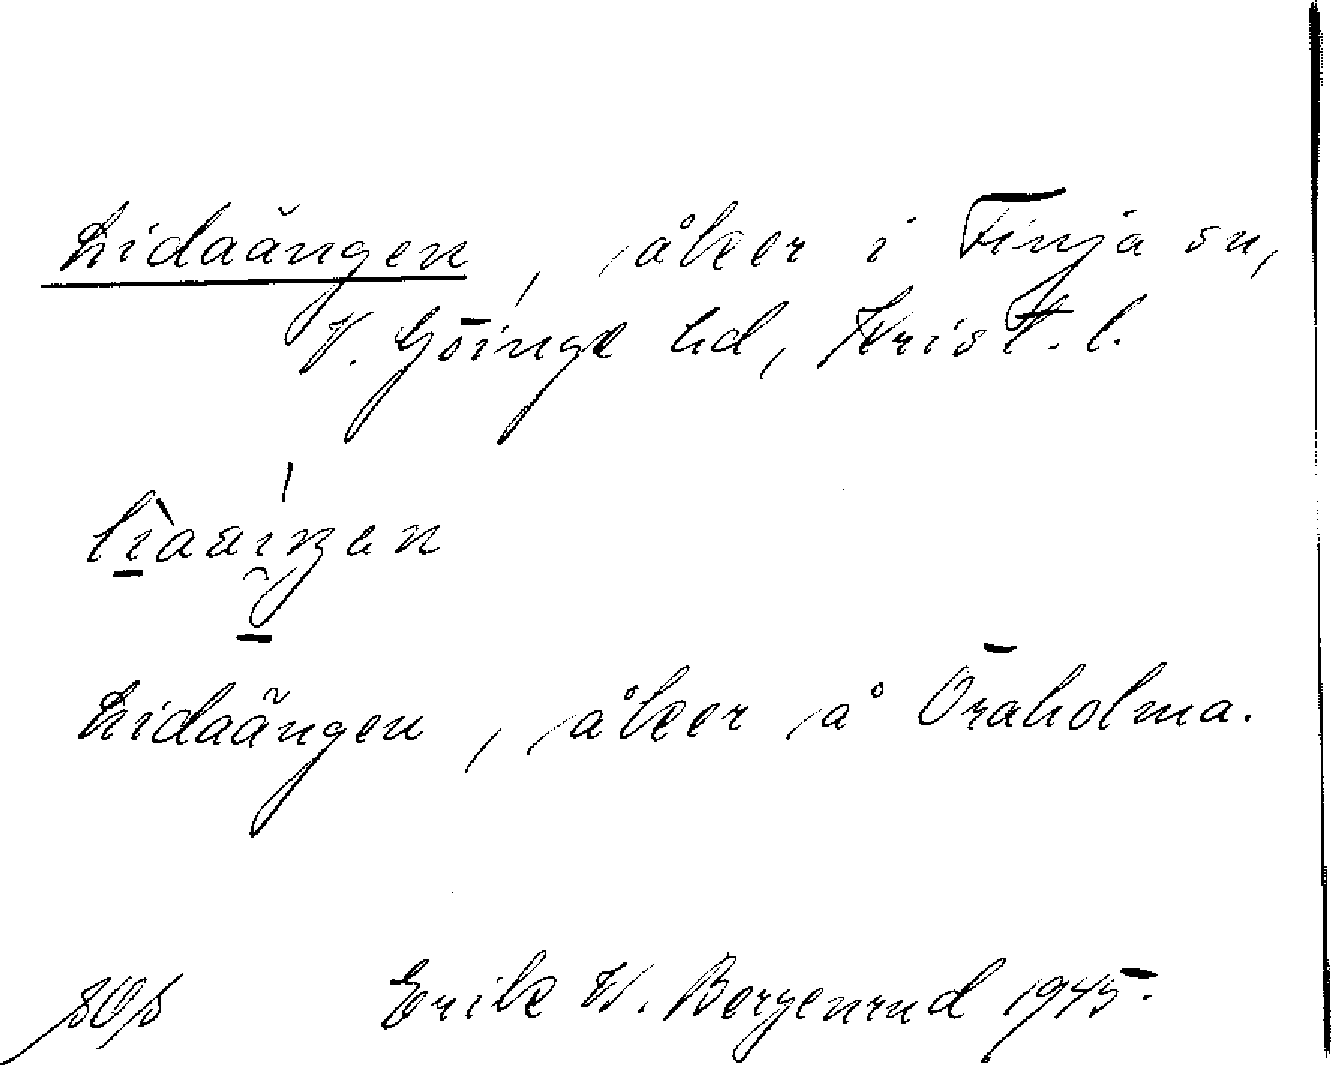 Lidaängen, åker i Finja sn,
V. Göinge hd, Krist. l.
Lidaängen, åker å Oraholma.
Erik W. Bergenrud 1945.